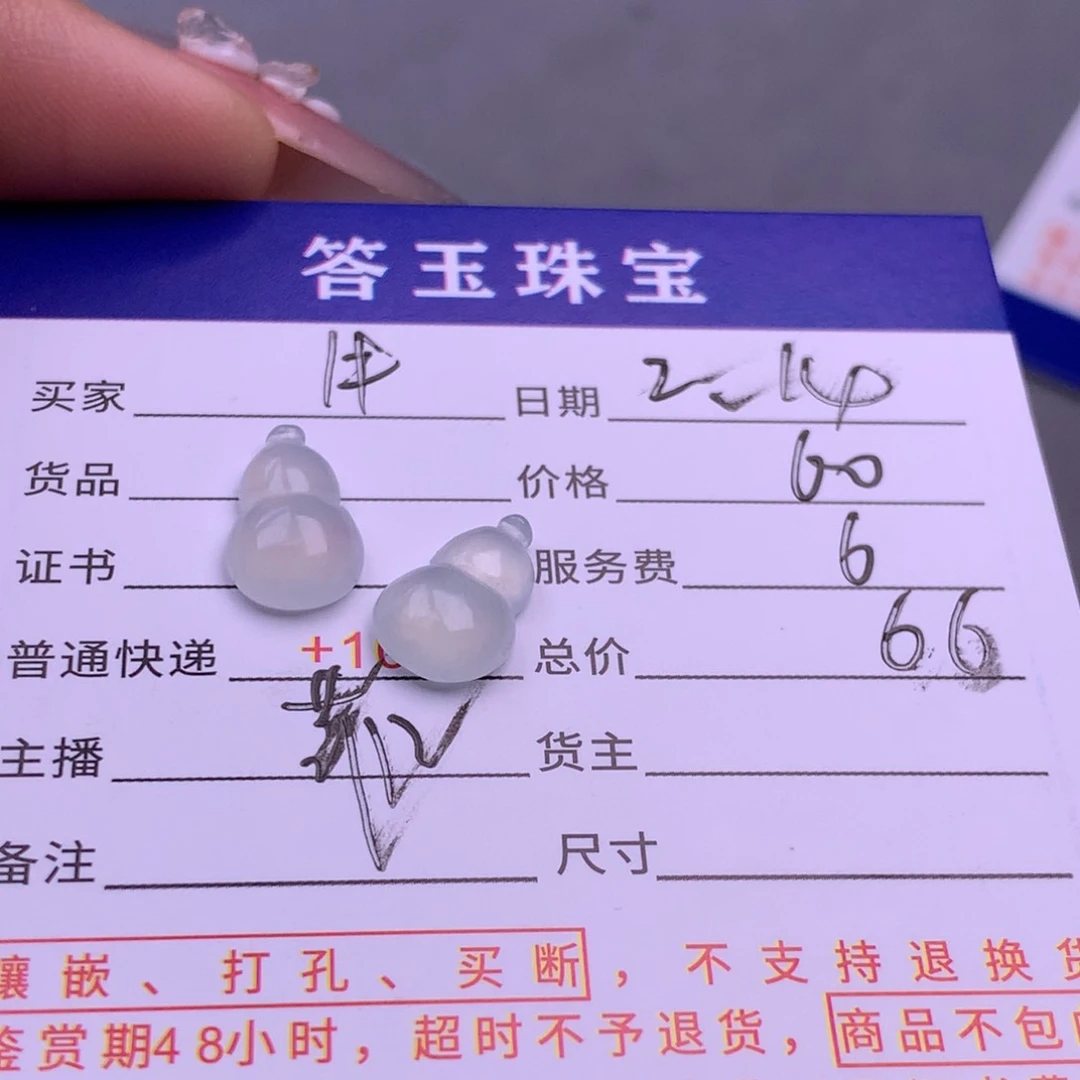 答玉珠宝
买家 日期 2.14
货品 价格 60
证书 服务费 6
普通快递 +1 总价 66
主播 货主
备注 尺寸
镶嵌、打孔、买断，不支持退换货
鉴赏期48小时，超时不予退货，商品不包